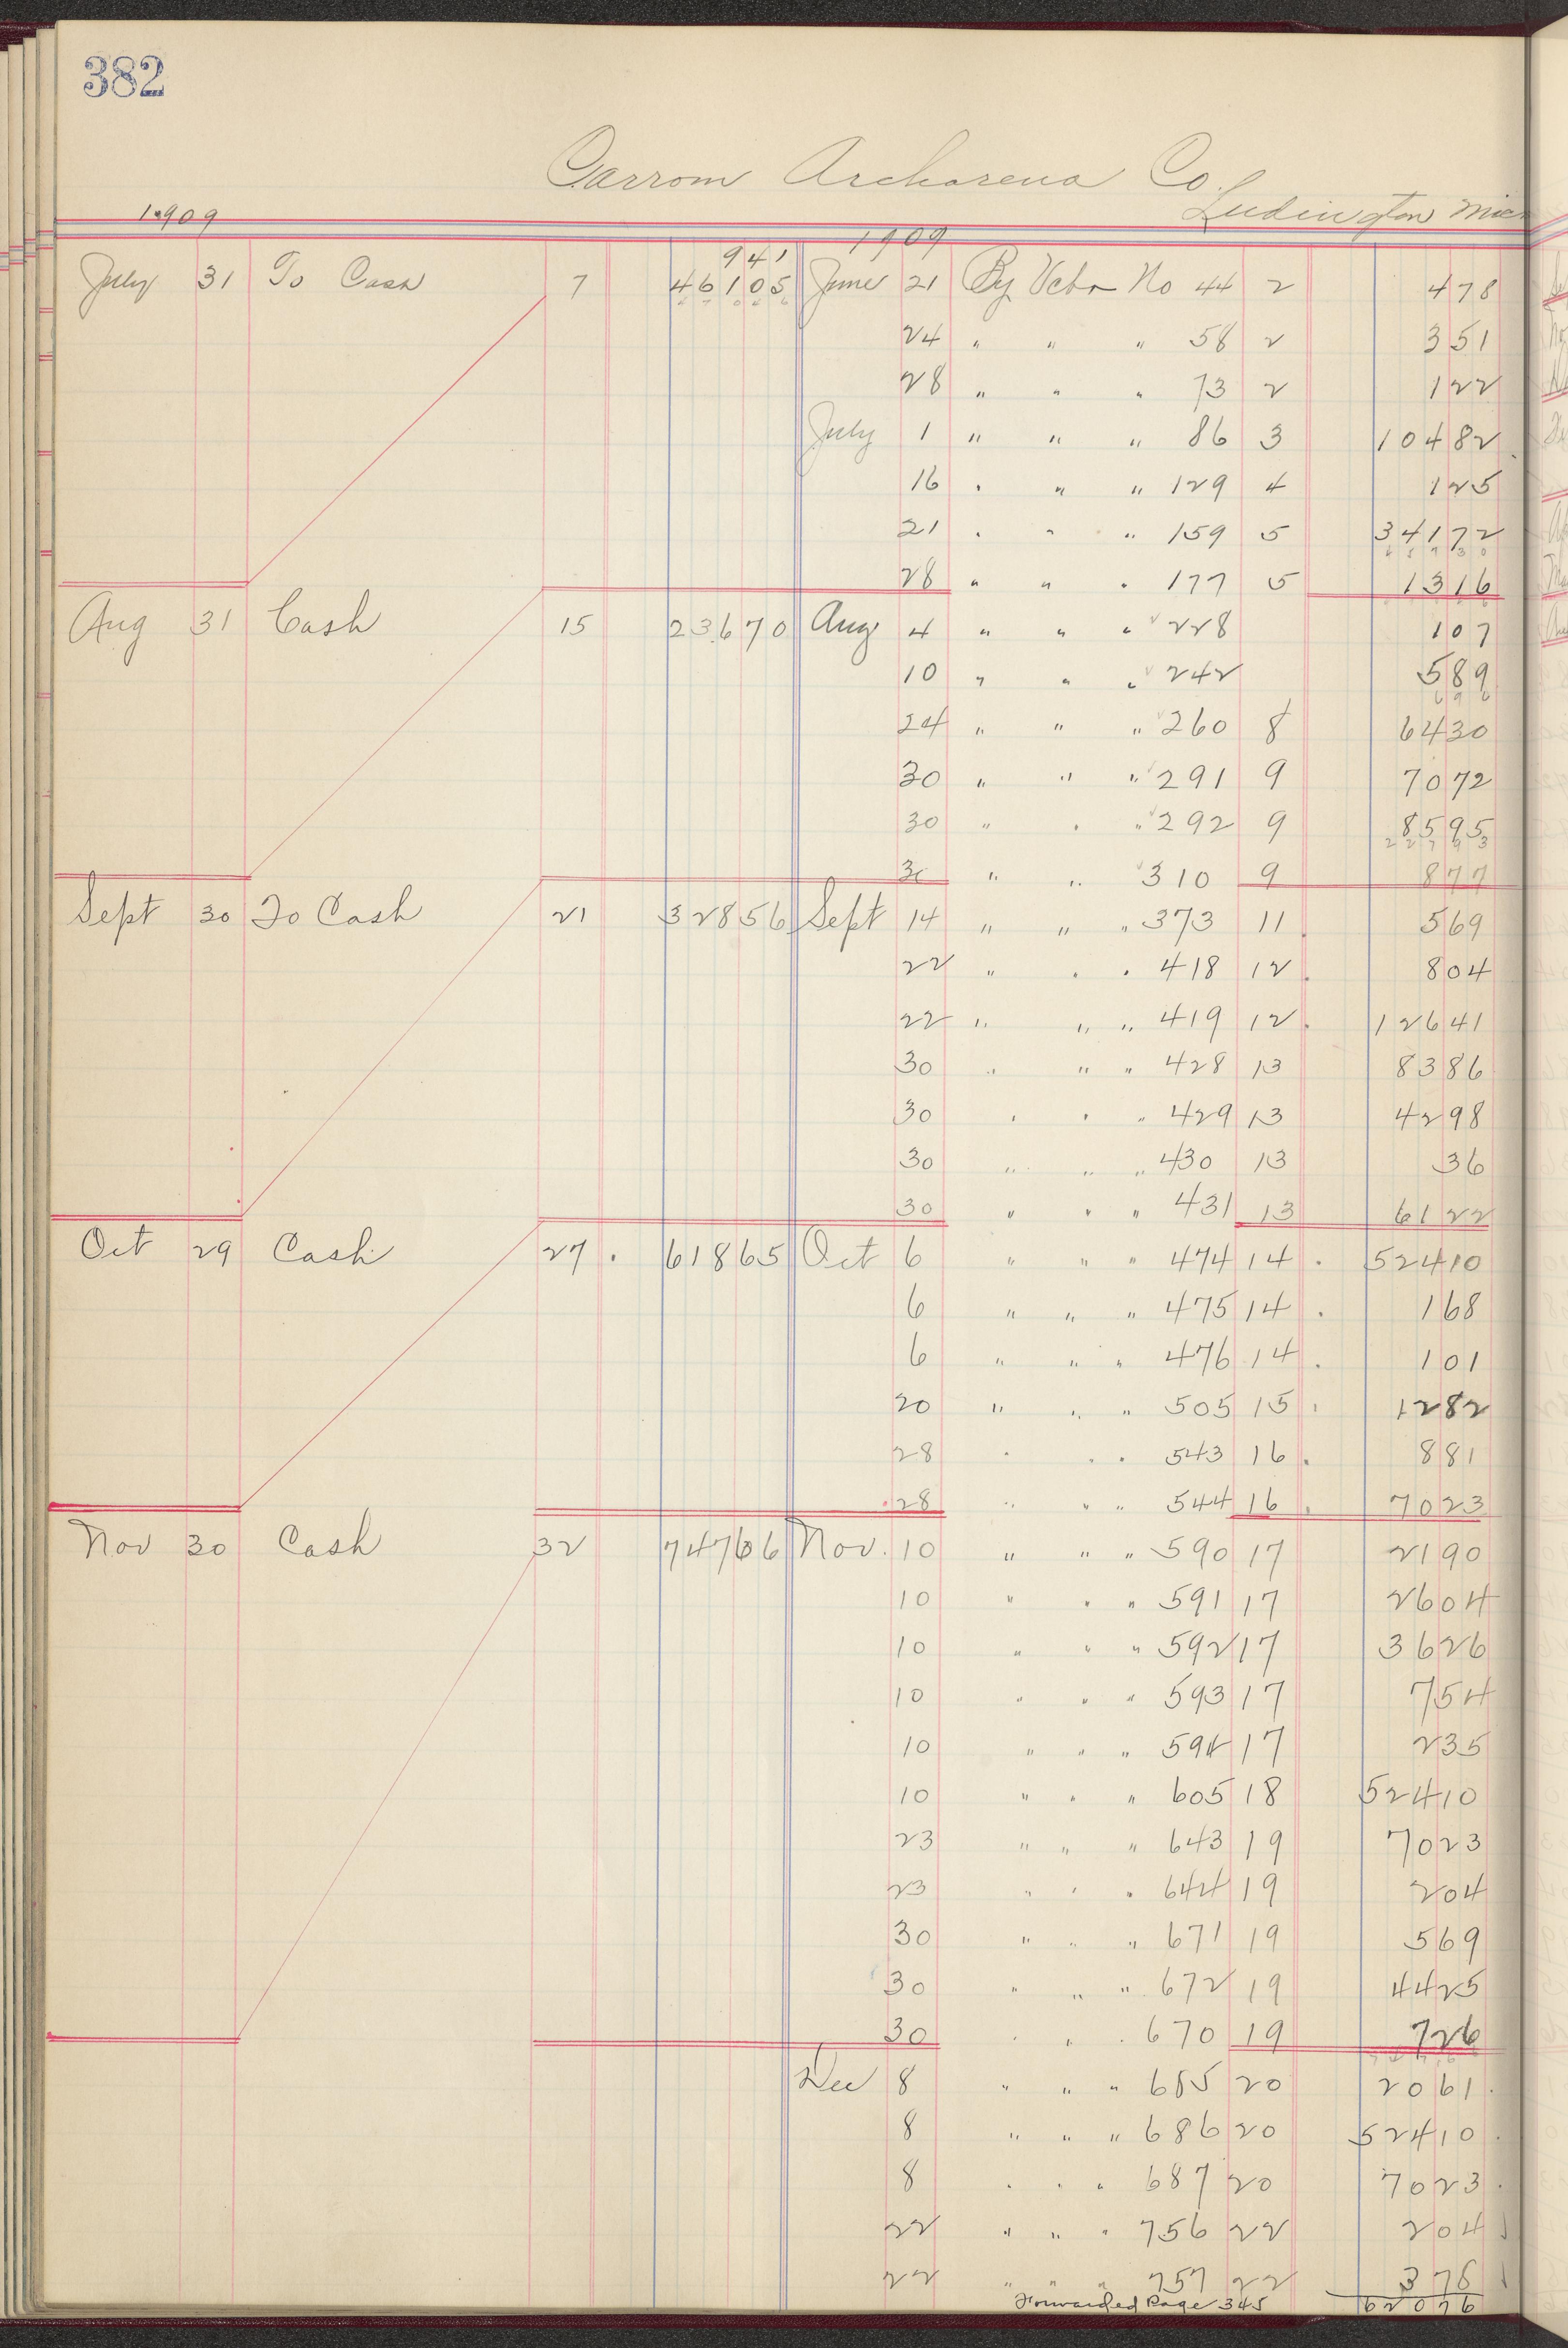 382
Carrom Archarena Co.
Ludington Mich
1909 1909
941
July 31 To Cash 7 46105 June 21 By Vchr No 44 2 478
24 " " " 58 2 351
28 " " " 73 2 122
July 1 " " " 86 3 10482
16 " " " 129 4 125
21 " " " 159 5 34172
28 " " " 177 5 1316
Aug 31 Cash 15 23670 Aug 4 " " " 228 107
10 " " " 242 589
24 " " " 260 8 6430
30 " " " 291 9 7072
30 " " " 292 9 8595
31 " " 310 9 877
Sept 30 To Cash 21 32856 Sept 14 " " " 373 11 569
22 " " " 418 12 804
22 " " " 419 12 12641
30 " " " 428 13 8386
30 " " " 429 13 4298
30 " " " 430 13 36
30 " " " 431 13 6122
Oct 29 Cash 27 61865 Oct 6 " " " 474 14 52410
6 " " " 475 14 168
6 " " " 476 14 101
20 " " " 505 15 1282
28 " " " 543 16 881
28 " " " 544 16 7023
Nov 30 Cash 32 74766 Nov. 10 " " " 590 17 2190
10 " " " 591 17 2604
10 " " " 592 17 3626
10 " " " 593 17 754
10 " " " 594 17 235
10 " " " 605 18 52410
23 " " " 643 19 7023
23 " " " 644 19 204
30 " " " 671 19 569
30 " " " 672 19 4425
30 " " " 670 19 726
Dec 8 " " " 685 20 2061
8 " " " 686 20 52410
8 " " " 687 20 7023
22 " " " 756 22 204
22 " " " 757 22 378
Forwarded Page 345 62076